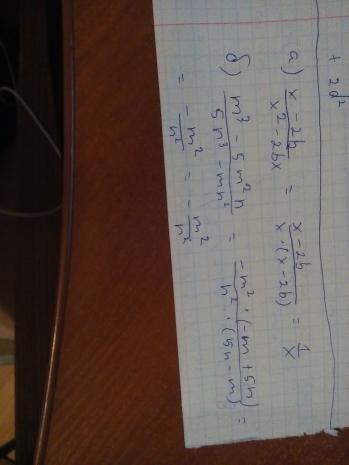 + 2d²
а) (x - 2b)/(x² - 2bx) = (x - 2b)/(x · (x - 2b)) = 1/x
б) (m³ - 5m²n)/(5n³ - mn²) = (-m² · (-m + 5n))/(n² · (5n - m)) =
= (-m²)/(n²) = - m²/n²